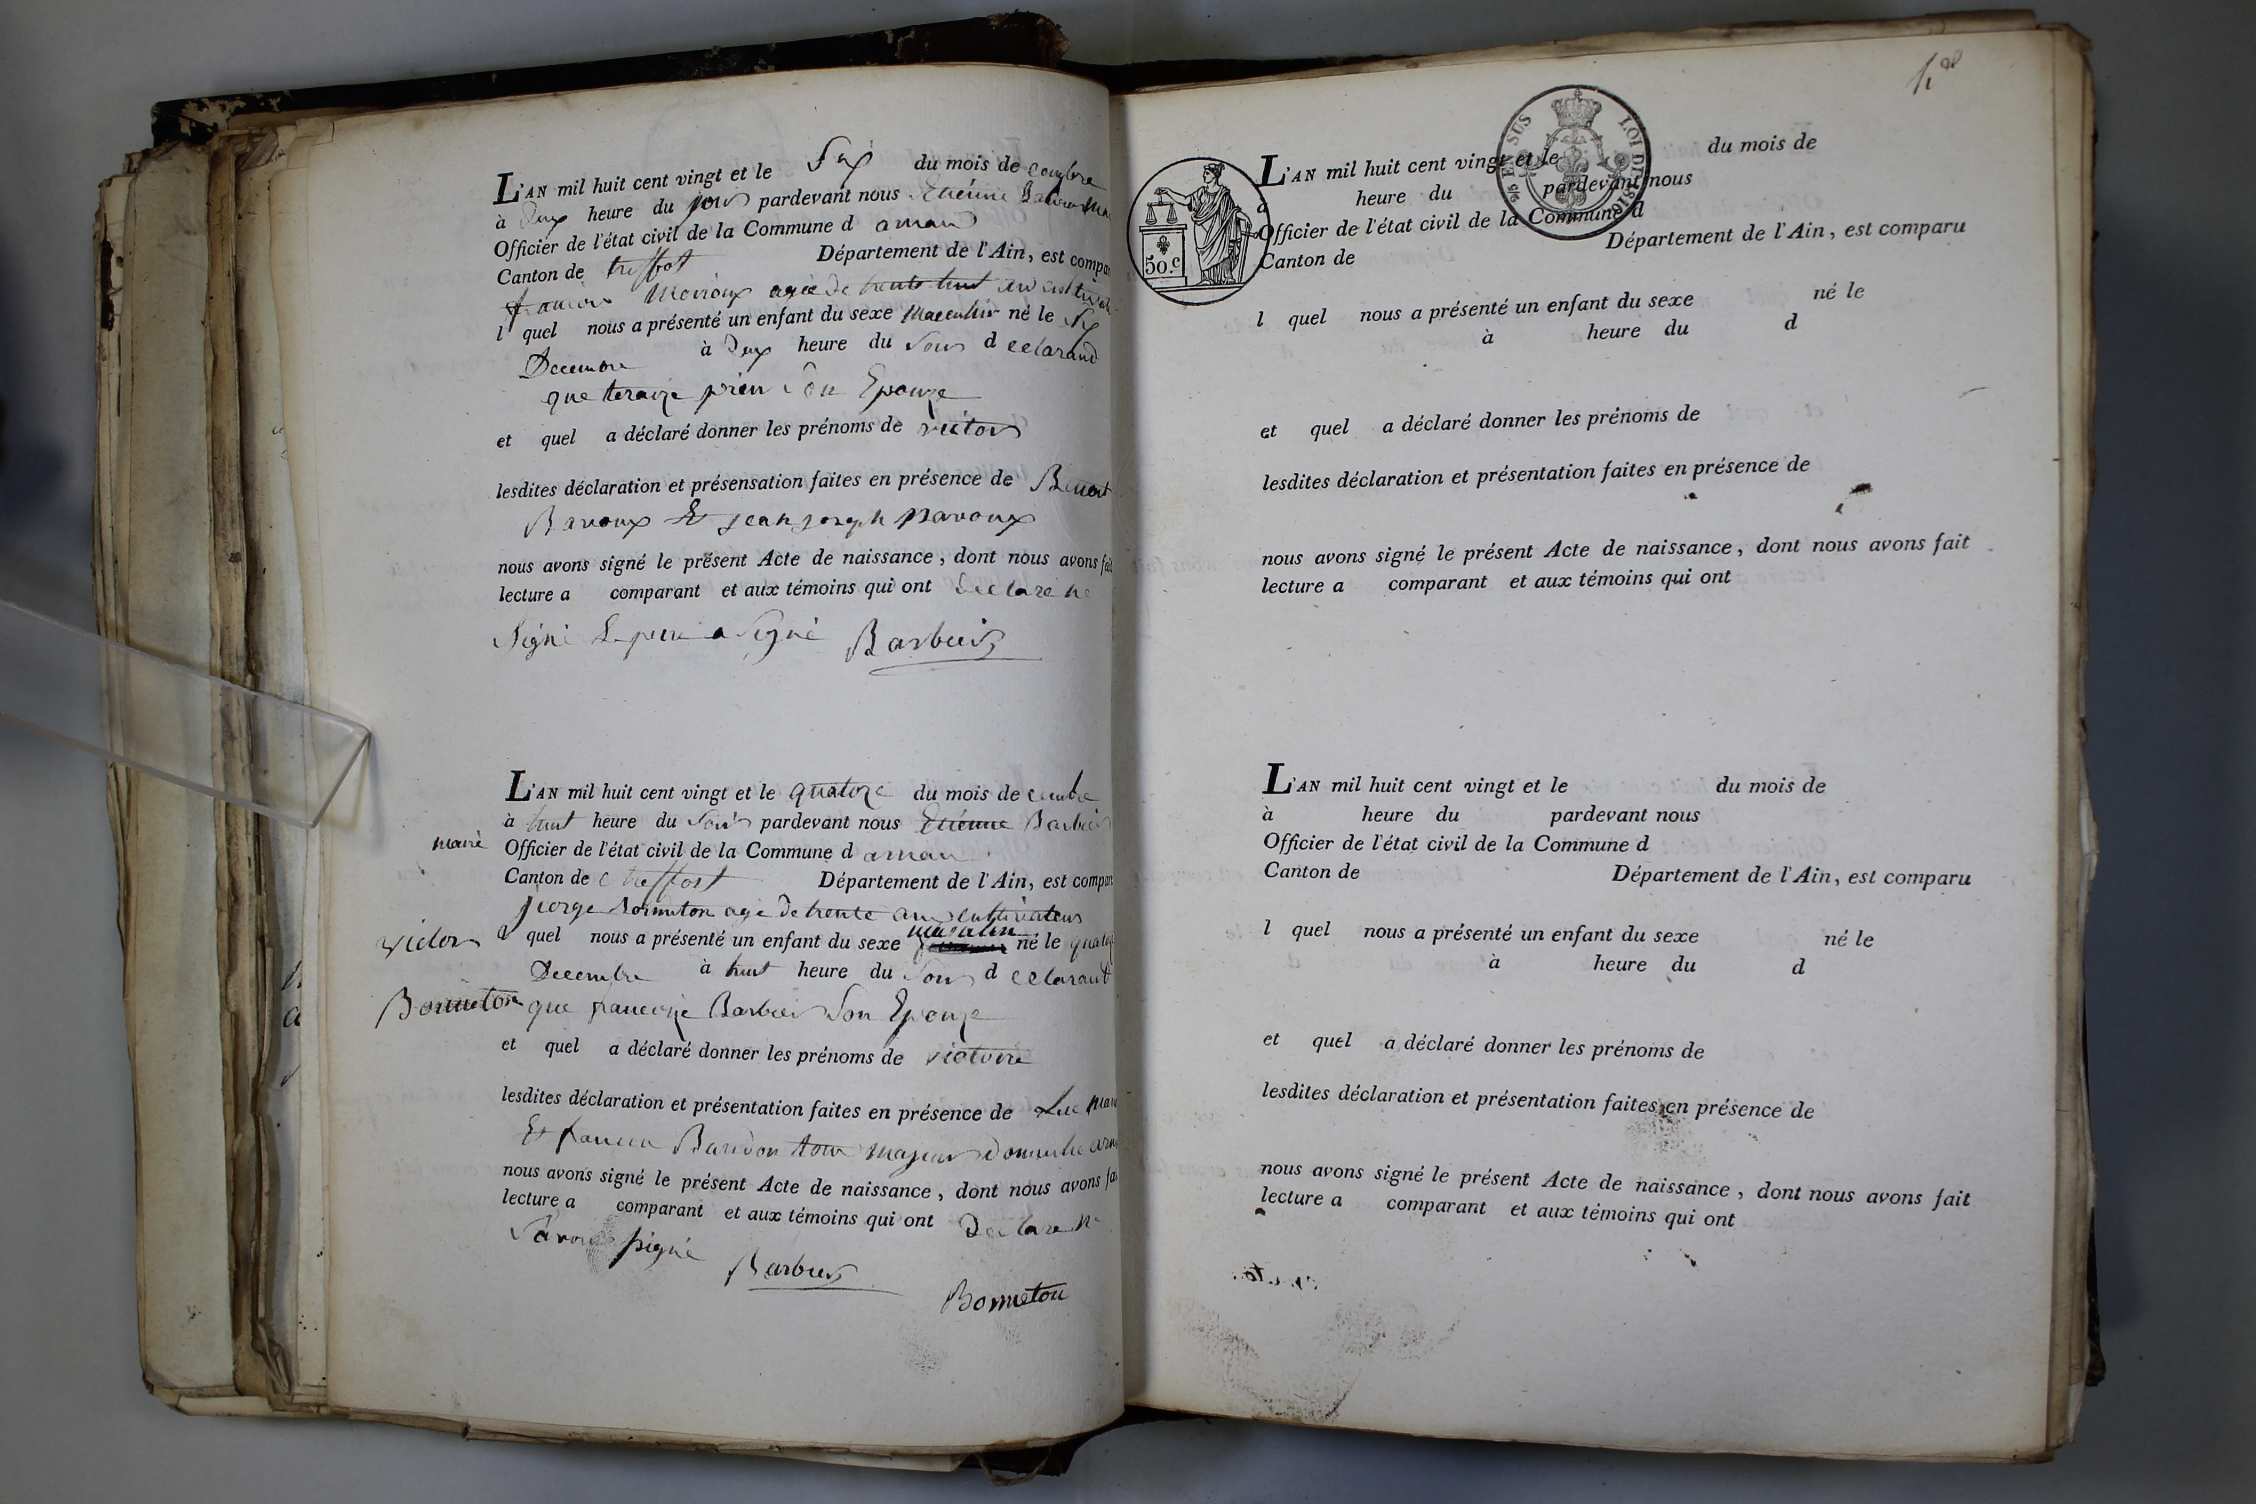 L'AN mil huit cent vingt et le Six du mois de
à deux heure du soir pardevant nous Etiénne
Officier de l'état civil de la Commune d arnan
Canton de treffort Département de l'Ain, est compar
agée de trente huit an
l quel nous a présenté un enfant du sexe masculin né le Six
Decembre à deux heure du Soir d eclarant
que son Epouze
et quel a déclaré donner les prénoms de victor
lesdites déclaration et présensation faites en présence de Benoit
Bavoux Et jean joseph Bavoux
nous avons signé le présent Acte de naissance, dont nous avons fait
lecture a comparant et aux témoins qui ont Declaré ne
Signé Le pere a Signé Barbier
L'AN mil huit cent vingt et le quatorze du mois de cembre
à huit heure du Soir pardevant nous Etiénne Barbier
maire Officier de l'état civil de la Commune d arnan
Canton de treffort Département de l'Ain, est compar
jeorge Bonneton agé de trente ans cultivateur
victor quel nous a présenté un enfant du sexe masculin né le quatorze
Decembre à huit heure du Soir d eclarant
Bonneton que francoize Barbier Son Epouze
et quel a déclaré donner les prénoms de victoire
lesdites déclaration et présentation faites en présence de Luc
Et
nous avons signé le présent Acte de naissance, dont nous avons fai
lecture a comparant et aux témoins qui ont Declaré ne
Savoir signé
Barbier
Bonneton
9/5 EN SUS LOI DE 1816
50.c
L'AN mil huit cent vingt et le du mois de
à heure du pardevant nous
Officier de l'état civil de la Commune d
Canton de Département de l'Ain, est comparu
l quel nous a présenté un enfant du sexe né le
à heure du d
et quel a déclaré donner les prénoms de
lesdites déclaration et présentation faites en présence de
nous avons signé le présent Acte de naissance, dont nous avons fait
lecture a comparant et aux témoins qui ont
L'AN mil huit cent vingt et le du mois de
à heure du pardevant nous
Officier de l'état civil de la Commune d
Canton de Département de l'Ain, est comparu
l quel nous a présenté un enfant du sexe né le
à heure du d
et quel a déclaré donner les prénoms de
lesdites déclaration et présentation faites en présence de
nous avons signé le présent Acte de naissance, dont nous avons fait
lecture a comparant et aux témoins qui ont